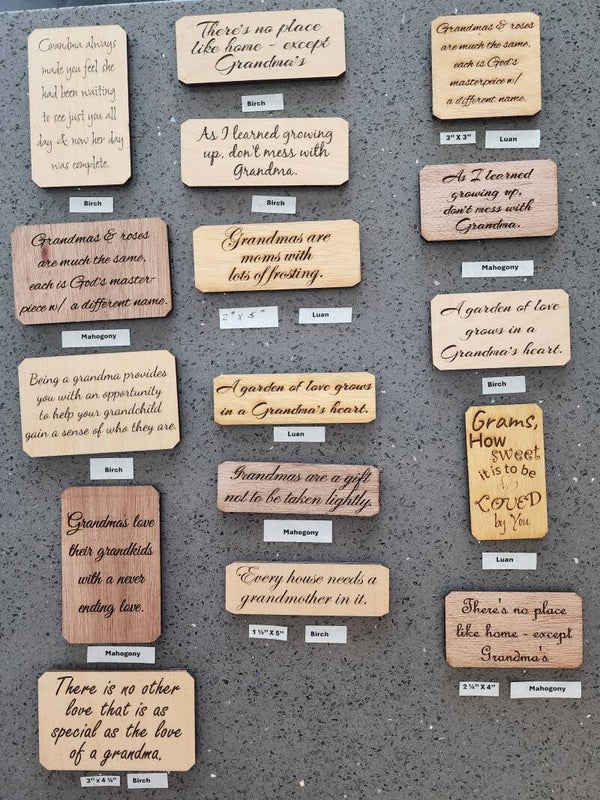 Grandma always
made you feel she
had been waiting
to see just you all
day & now her day
was complete.
Birch
Grandmas & roses
are much the same,
each is God's master-
piece w/ a different name.
Mahogony
Being a grandma provides
you with an opportunity
to help your grandchild
gain a sense of who they are.
Birch
Grandmas love
their grandkids
with a never
ending love.
Mahogony
There is no other
love that is as
special as the love
of a grandma.
3" x 4 ¼" Birch
There's no place
like home - except
Grandma's
Birch
As I learned growing
up, don't mess with
Grandma.
Birch
Grandmas are
moms with
lots of frosting.
2" X 5" Luan
A garden of love grows
in a Grandma's heart.
Luan
Grandmas are a gift
not to be taken lightly.
Mahogony
Every house needs a
grandmother in it.
1 ½" X 5" Birch
Grandmas & roses
are much the same,
each is God's
masterpiece w/
a different name.
3" X 3" Luan
As I learned
growing up,
don't mess with
Grandma.
Mahogony
A garden of love
grows in a
Grandma's heart.
Birch
Grams,
How
sweet
it is to be
LOVED
by You
Luan
There's no place
like home - except
Grandma's
2 ¼" X 4" Mahogony